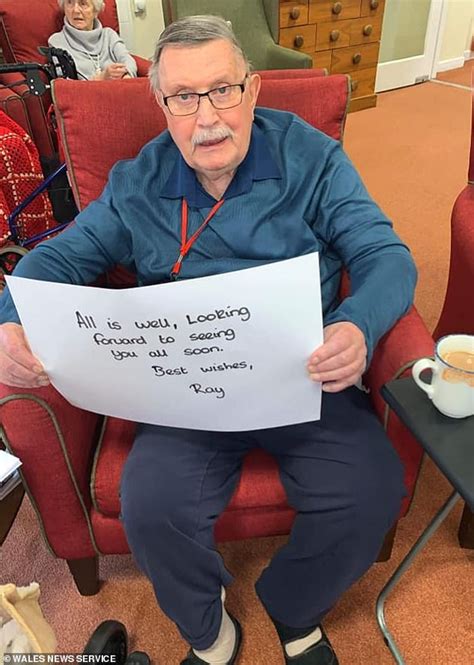 All is well, Looking
forward to seeing
you all soon.
Best wishes,
Ray
© WALES NEWS SERVICE